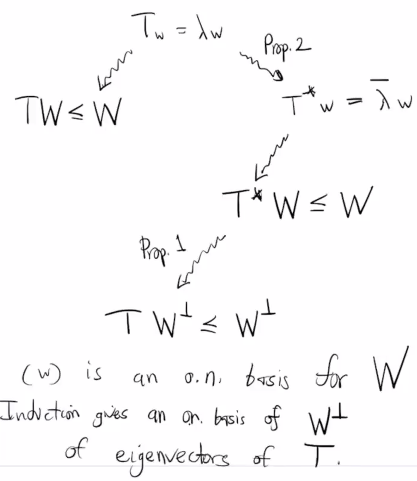 Tw = λw
Prop. 2
TW ≤ W
T* w = λ̄ w
T* W ≤ W
Prop. 1
T W⊥ ≤ W⊥
(w) is an o.n. basis for W
Induction gives an on. basis of W⊥
of eigenvectors of T.